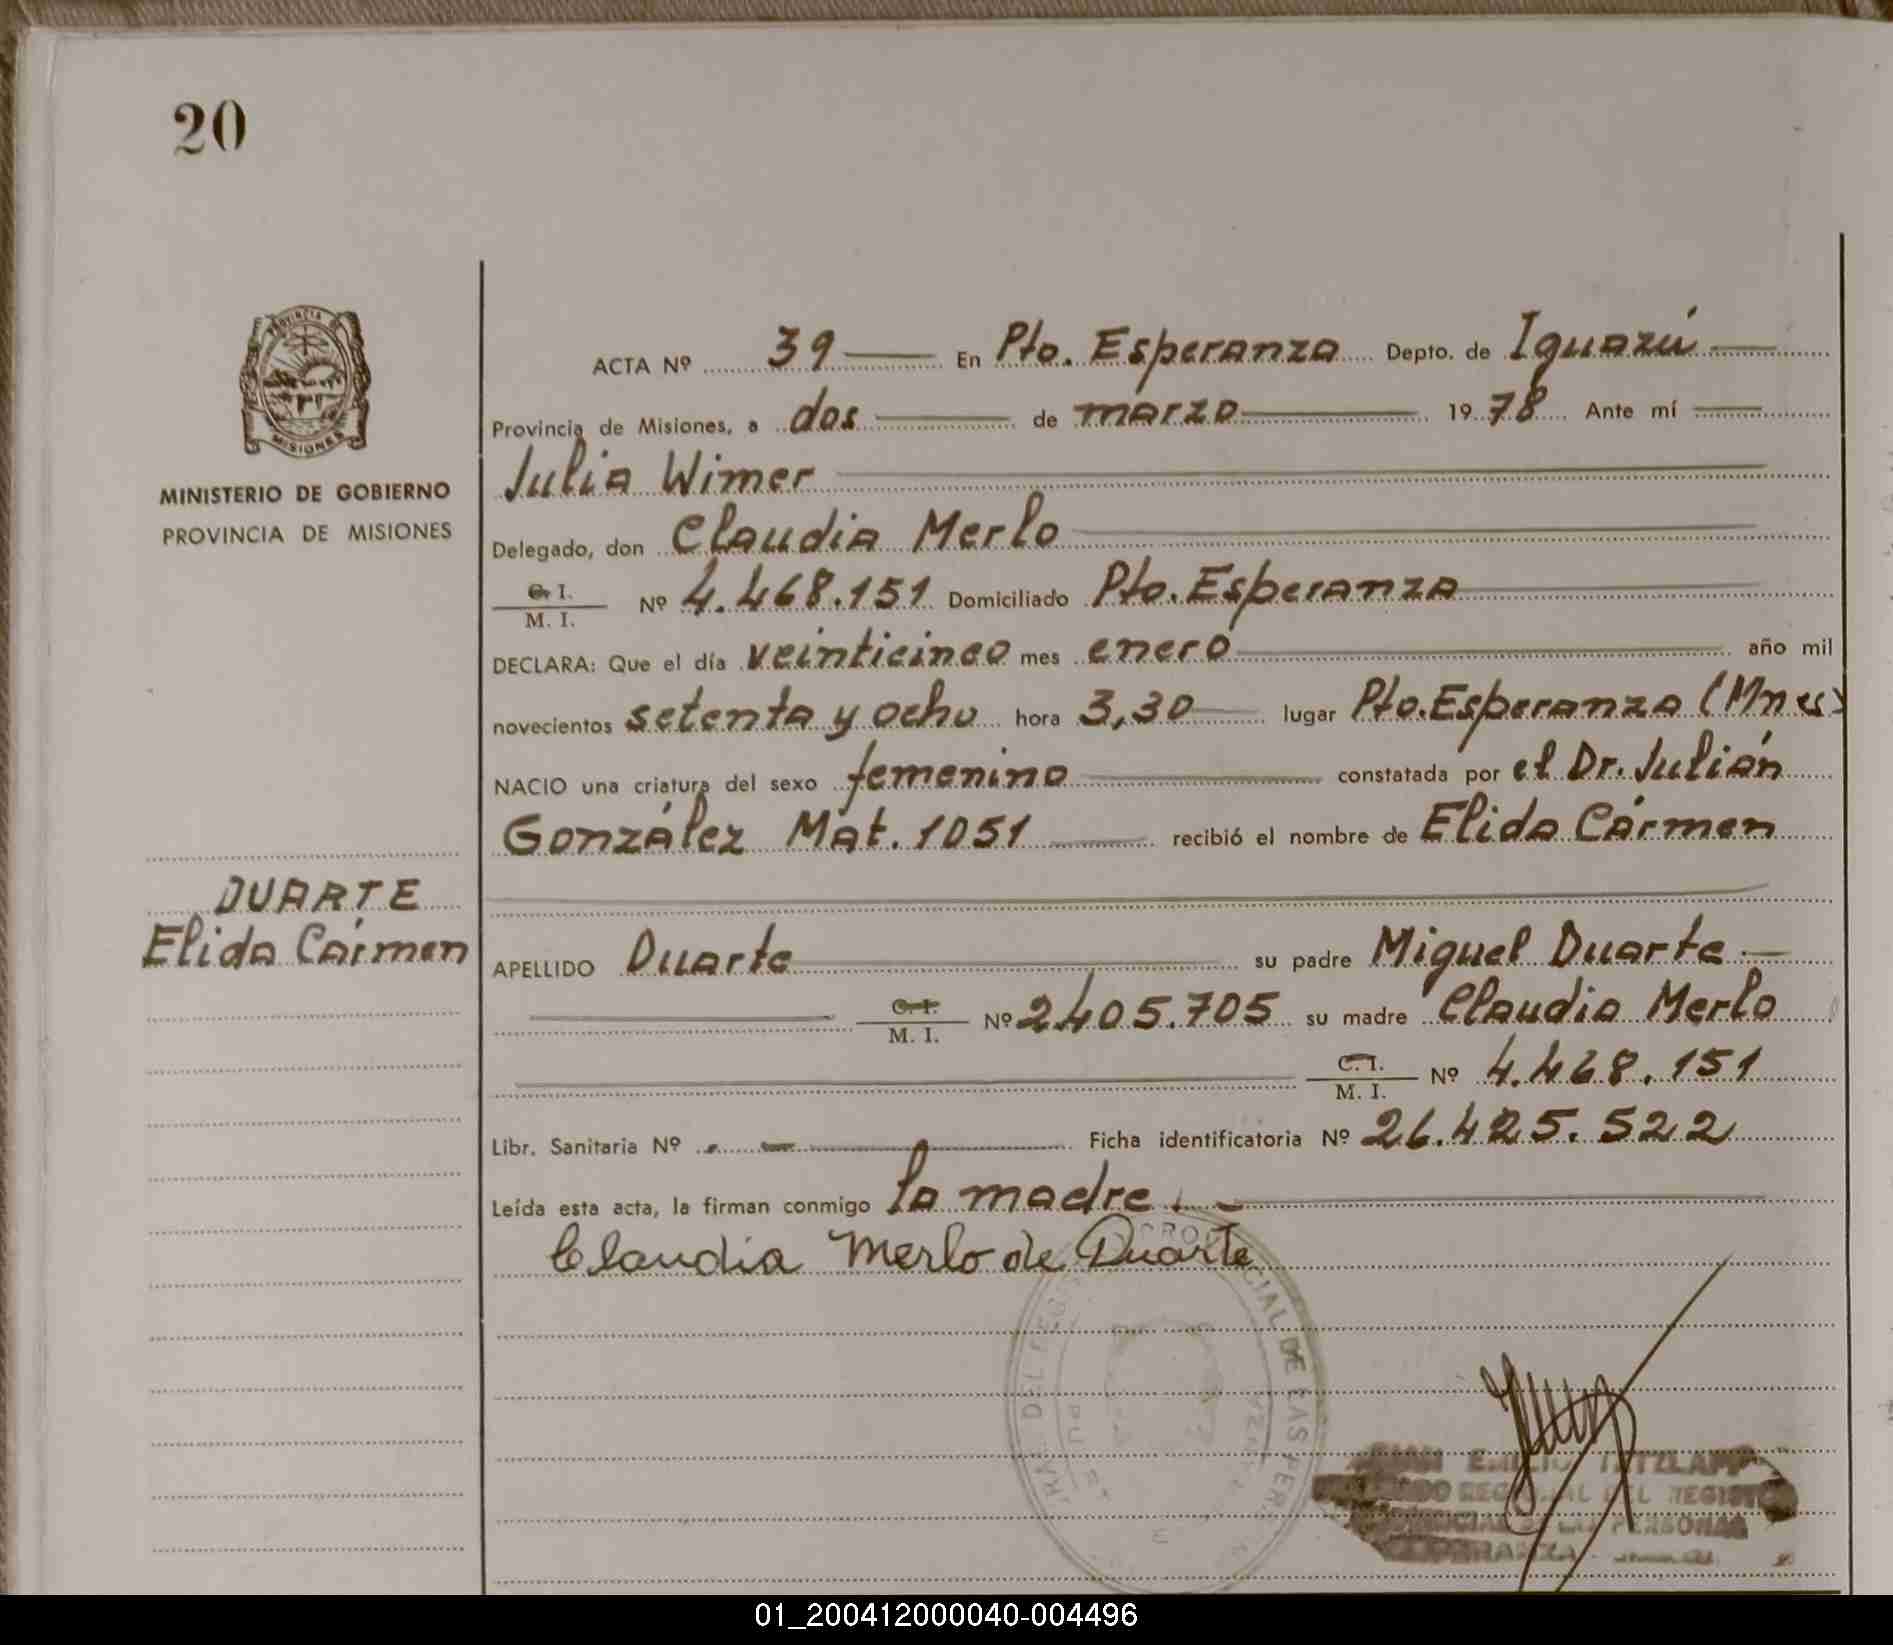 20
PROVINCIA
MISIONES
MINISTERIO DE GOBIERNO
PROVINCIA DE MISIONES
ACTA Nº 39 En Pto. Esperanza Depto. de Iguazú
Provincia de Misiones, a dos de marzo 1978 Ante mí
Julia Wimer
Delegado, don Claudia Merlo
C. I.
M. I. Nº 4.468.151 Domiciliado Pto. Esperanza
DECLARA: Que el día veinticinco mes enero año mil
novecientos setenta y ocho hora 3,30 lugar Pto. Esperanza (Mnes)
NACIO una criatura del sexo femenino constatada por el Dr. Julián
González Mat. 1051 recibió el nombre de Elida Cármen
DUARTE
Elida Cármen
APELLIDO Duarte su padre Miguel Duarte
C. I.
M. I. Nº 2.405.705 su madre Claudia Merlo
C. I.
M. I. Nº 4.468.151
Libr. Sanitaria Nº Ficha identificatoria Nº 26.425.522
Leída esta acta, la firman conmigo la madre.
Claudia Merlo de Duarte
CIAL DE LAS PER
EMILIO
REGIONAL DEL REGIST
PERSONAS
ESPERANZA
01_200412000040-004496